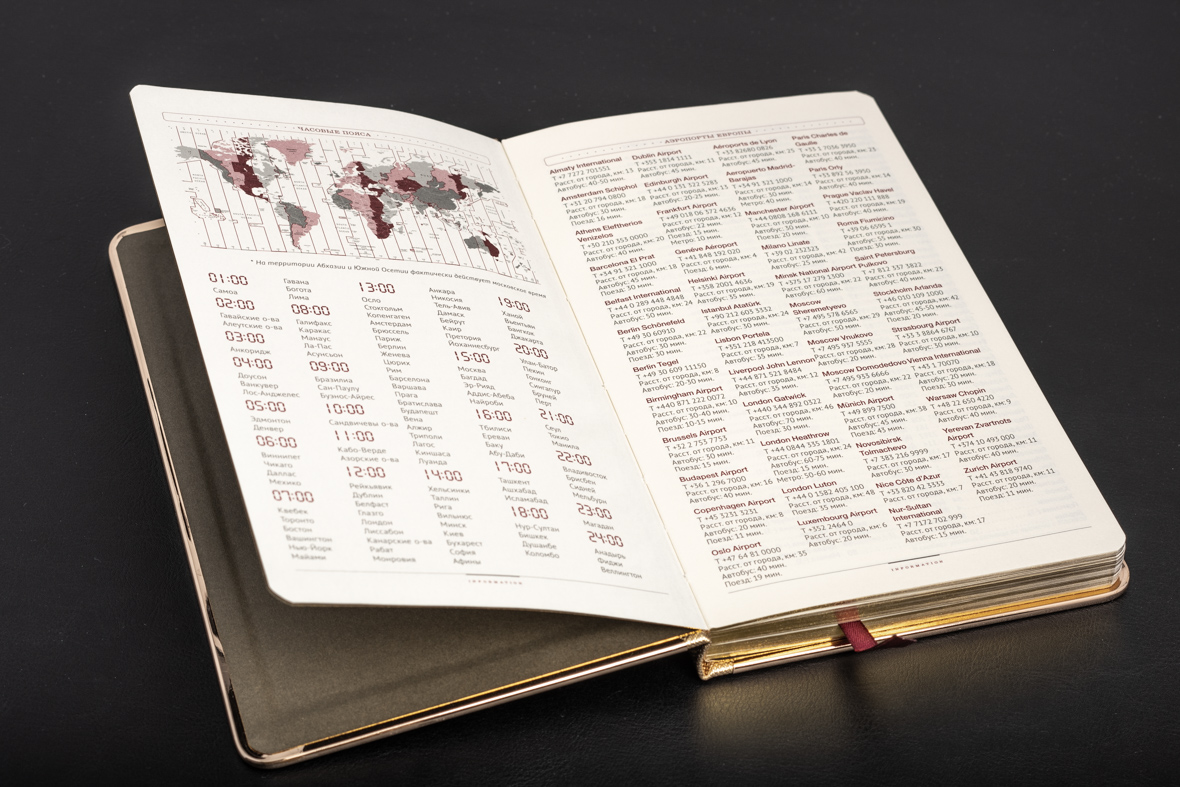 ЧАСОВЫЕ ПОЯСА
* На территории Абхазии и Южной Осетии фактически действует московское время
01:00
Самоа
02:00
Гавайские о-ва
Алеутские о-ва
03:00
Анкоридж
04:00
Доусон
Ванкувер
Лос-Анджелес
05:00
Эдмонтон
Денвер
06:00
Виннипег
Чикаго
Даллас
Мехико
07:00
Квебек
Торонто
Бостон
Вашингтон
Нью-Йорк
Майами
Гавана
Богота
Лима
08:00
Галифакс
Каракас
Манаус
Ла-Пас
Асунсьон
09:00
Бразилиа
Сан-Паулу
Буэнос-Айрес
10:00
Сандвичевы о-ва
11:00
Кабо-Верде
Азорские о-ва
12:00
Рейкьявик
Дублин
Белфаст
Глазго
Лондон
Лиссабон
Канарские о-ва
Рабат
Монровия
13:00
Осло
Стокгольм
Копенгаген
Амстердам
Брюссель
Париж
Берлин
Женева
Цюрих
Рим
Барселона
Варшава
Прага
Братислава
Будапешт
Алжир
Триполи
Лагос
Киншаса
Луанда
14:00
Хельсинки
Таллин
Рига
Вильнюс
Минск
Киев
Бухарест
София
Афины
Анкара
Никосия
Тель-Авив
Дамаск
Бейрут
Каир
Претория
Йоханнесбург
15:00
Москва
Багдад
Эр-Рияд
Аддис-Абеба
Найроби
16:00
Тбилиси
Ереван
Баку
Абу-Даби
17:00
Ташкент
Ашхабад
Исламабад
18:00
Нур-Султан
Бишкек
Душанбе
Коломбо
19:00
Ханой
Вьентьян
Бангкок
Джакарта
20:00
Улан-Батор
Пекин
Гонконг
Сингапур
Бруней
Перт
21:00
Сеул
Токио
Манила
22:00
Владивосток
Брисбен
Сидней
Мельбурн
23:00
Магадан
24:00
Анадырь
Фиджи
Веллингтон
INFORMATION
АЭРОПОРТЫ ЕВРОПЫ
Almaty International
T +7 7272 701551
Расст. от города, км: 13
Автобус: 40-50 мин.
Amsterdam Schiphol
T +31 20 794 0800
Расст. от города, км: 18
Автобус: 30 мин.
Поезд: 16 мин.
Athens Eleftherios
Venizelos
T +30 210 353 0000
Расст. от города, км: 20
Автобус: 40 мин.
Barcelona El Prat
T +34 91 321 1000
Расст. от города, км: 18
Автобус: 45 мин.
Поезд: 30 мин.
Belfast International
T +44 0 289 448 4848
Расст. от города, км: 24
Автобус: 50 мин.
Berlin Schönefeld
T +49 30 60910
Расст. от города, км: 22
Автобус: 50 мин.
Поезд: 30 мин.
Berlin Tegel
T +49 30 609 11150
Расст. от города, км: 8
Автобус: 20-30 мин.
Birmingham Airport
T +440 871 222 0072
Расст. от города, км: 10
Автобус: 30-40 мин.
Поезд: 10-15 мин.
Brussels Airport
T +32 2 753 7753
Расст. от города, км: 11
Автобус: 50 мин.
Поезд: 15 мин.
Budapest Airport
T +36 1 296 7000
Расст. от города, км: 16
Автобус: 40 мин.
Copenhagen Airport
T +45 3231 3231
Расст. от города, км: 8
Автобус: 20 мин.
Поезд: 11 мин.
Oslo Airport
T +47 64 81 0000
Расст. от города, км: 35
Автобус: 40 мин.
Поезд: 19 мин.
Dublin Airport
T +353 1814 1111
Расст. от города, км: 11
Автобус: 45 мин.
Edinburgh Airport
T +44 0 131 322 5283
Расст. от города, км: 13
Автобус: 20-25 мин.
Frankfurt Airport
T +49 018 06 372 4636
Расст. от города, км: 12
Автобус: 22 мин.
Поезд: 15 мин.
Метро: 10 мин.
Genève Aéroport
T +41 848 192 020
Расст. от города, км: 4
Поезд: 6 мин.
Helsinki Airport
T +358 2001 4636
Расст. от города, км: 19
Автобус: 35 мин.
Istanbul Atatürk
T +90 212 603 3332
Расст. от города, км: 24
Автобус: 30 мин.
Lisbon Portela
T +351 218 413500
Расст. от города, км: 7
Автобус: 35 мин.
Liverpool John Lennon
T +44 871 521 8484
Расст. от города, км: 12
Автобус: 35 мин.
London Gatwick
T +440 344 892 0322
Расст. от города, км: 46
Автобус: 70 мин.
Поезд: 30 мин.
London Heathrow
T +44 0844 335 1801
Расст. от города, км: 24
Автобус: 60-75 мин.
Поезд: 15 мин.
Метро: 50-60 мин.
London Luton
T +44 0 1582 405 100
Расст. от города, км: 48
Поезд: 35 мин.
Luxembourg Airport
T +352 2464 0
Расст. от города, км: 6
Автобус: 20 мин.
Aéroports de Lyon
T +33 82680 0826
Расст. от города, км: 25
Автобус: 45 мин.
Aeropuerto Madrid-
Barajas
T +34 91 321 1000
Расст. от города, км: 14
Автобус: 30 мин.
Метро: 40 мин.
Manchester Airport
T +44 0808 168 6111
Расст. от города, км: 10
Автобус: 30 мин.
Поезд: 20 мин.
Milano Linate
T +39 02 232323
Расст. от города, км: 42
Автобус: 25 мин.
Minsk National Airport
T +375 17 279 1300
Расст. от города, км: 22
Автобус: 60 мин.
Moscow
Sheremetyevo
T +7 495 578 6565
Расст. от города, км: 29
Автобус: 50 мин.
Moscow Vnukovo
T +7 495 937 5555
Расст. от города, км: 28
Moscow Domodedovo
T +7 495 933 6666
Расст. от города, км: 22
Автобус: 40 мин.
Münich Airport
T +49 899 7500
Расст. от города, км: 38
Автобус: 45 мин.
Поезд: 45 мин.
Novosibirsk
Tolmachevo
T +7 383 216 9999
Расст. от города, км: 17
Автобус: 30 мин.
Nice Côte d'Azur
T +33 820 42 3333
Расст. от города, км: 7
Автобус: 20 мин.
Nur-Sultan
International
T +7 7172 702 999
Расст. от города, км: 17
Автобус: 15 мин.
Paris Charles de
Gaulle
T +33 1 7036 3950
Расст. от города, км: 23
Автобус: 40 мин.
Paris Orly
T +33 892 56 3950
Расст. от города, км: 14
Автобус: 40 мин.
Prague Vaclav Havel
T +420 220 111 888
Расст. от города, км: 19
Автобус: 40 мин.
Roma Fiumicino
T +39 06 6595 1
Расст. от города, км: 30
Автобус: 55 мин.
Поезд: 30 мин.
Saint Petersburg
Pulkovo
T +7 812 337 3822
Расст. от города, км: 23
Автобус: 40 мин.
Stockholm Arlanda
T +46 010 109 1000
Расст. от города, км: 42
Автобус: 45-50 мин.
Поезд: 20 мин.
Strasbourg Airport
T +33 3 8864 6767
Расст. от города, км: 10
Автобус: 30 мин.
Vienna International
T +43 1 70070
Расст. от города, км: 18
Автобус: 20 мин.
Поезд: 30 мин.
Warsaw Chopin
T +48 22 650 4220
Расст. от города, км: 9
Автобус: 40 мин.
Yerevan Zvartnots
Airport
T +374 10 493 000
Расст. от города, км: 11
Автобус: 40 мин.
Zurich Airport
T +41 43 818 9740
Расст. от города, км: 11
Автобус: 20 мин.
Поезд: 11 мин.
INFORMATION